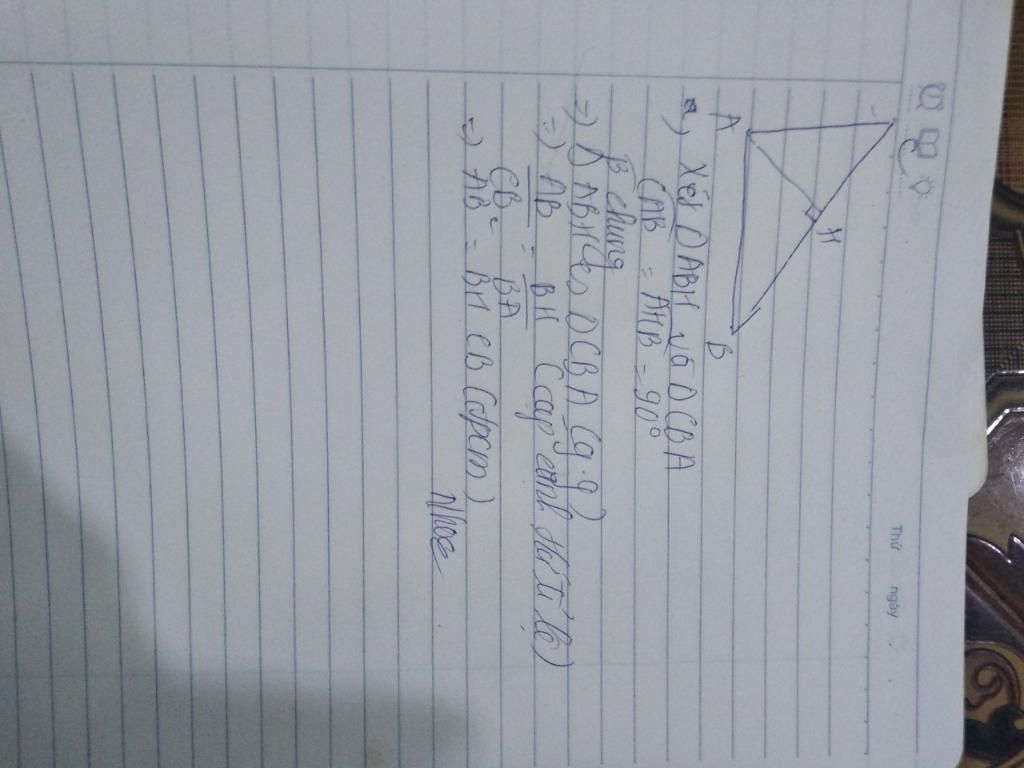 Thứ ngày
A
H
B
a) Xét ΔABH và ΔCBA
CAB = AHB = 90°
B chung
=> ΔABH ∽ ΔCBA (g.g)
=> AB/CB = BH/BA (cặp cạnh tỉ lệ)
=> AB² = BH CB (đpcm)